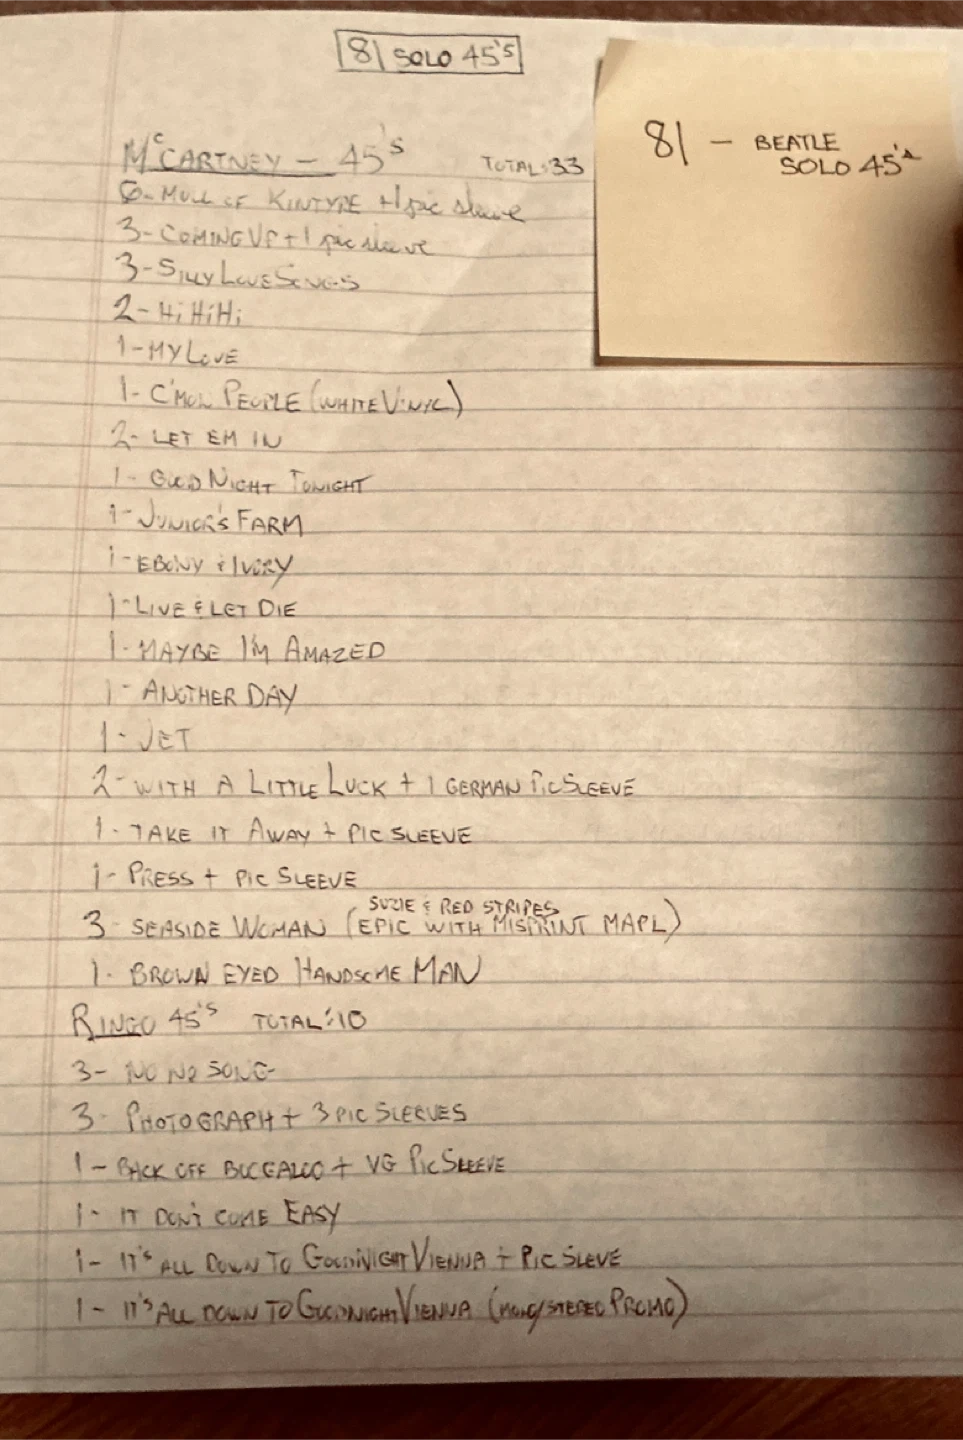 81 SOLO 45'S
81 - BEATLE
SOLO 45's
McCARTNEY - 45'S TOTAL: 33
6- MULL OF KINTYRE +1 pic sleeve
3- COMING UP + 1 pic sleeve
3- SILLY LOVE SONGS
2- Hi Hi Hi
1- MY LOVE
1- C'MON PEOPLE (WHITE VINYL)
2- LET EM IN
1- GOOD NIGHT TONIGHT
1- JUNIOR'S FARM
1- EBONY & IVORY
1- LIVE & LET DIE
1- MAYBE I'M AMAZED
1- ANOTHER DAY
1- JET
2- WITH A LITTLE LUCK + 1 GERMAN PIC SLEEVE
1- TAKE IT AWAY + PIC SLEEVE
1- PRESS + PIC SLEEVE
SUZIE & RED STRIPES
3- SEASIDE WOMAN (EPIC WITH MISPRINT MAPL)
1- BROWN EYED HANDSOME MAN
RINGO 45'S TOTAL: 10
3- NO NO SONG
3- PHOTOGRAPH + 3 PIC SLEEVES
1- BACK OFF BOOGALOO + VG PIC SLEEVE
1- IT DON'T COME EASY
1- IT'S ALL DOWN TO GOODNIGHT VIENNA + PIC SLEVE
1- IT'S ALL DOWN TO GOODNIGHT VIENNA (MONO/STEREO PROMO)